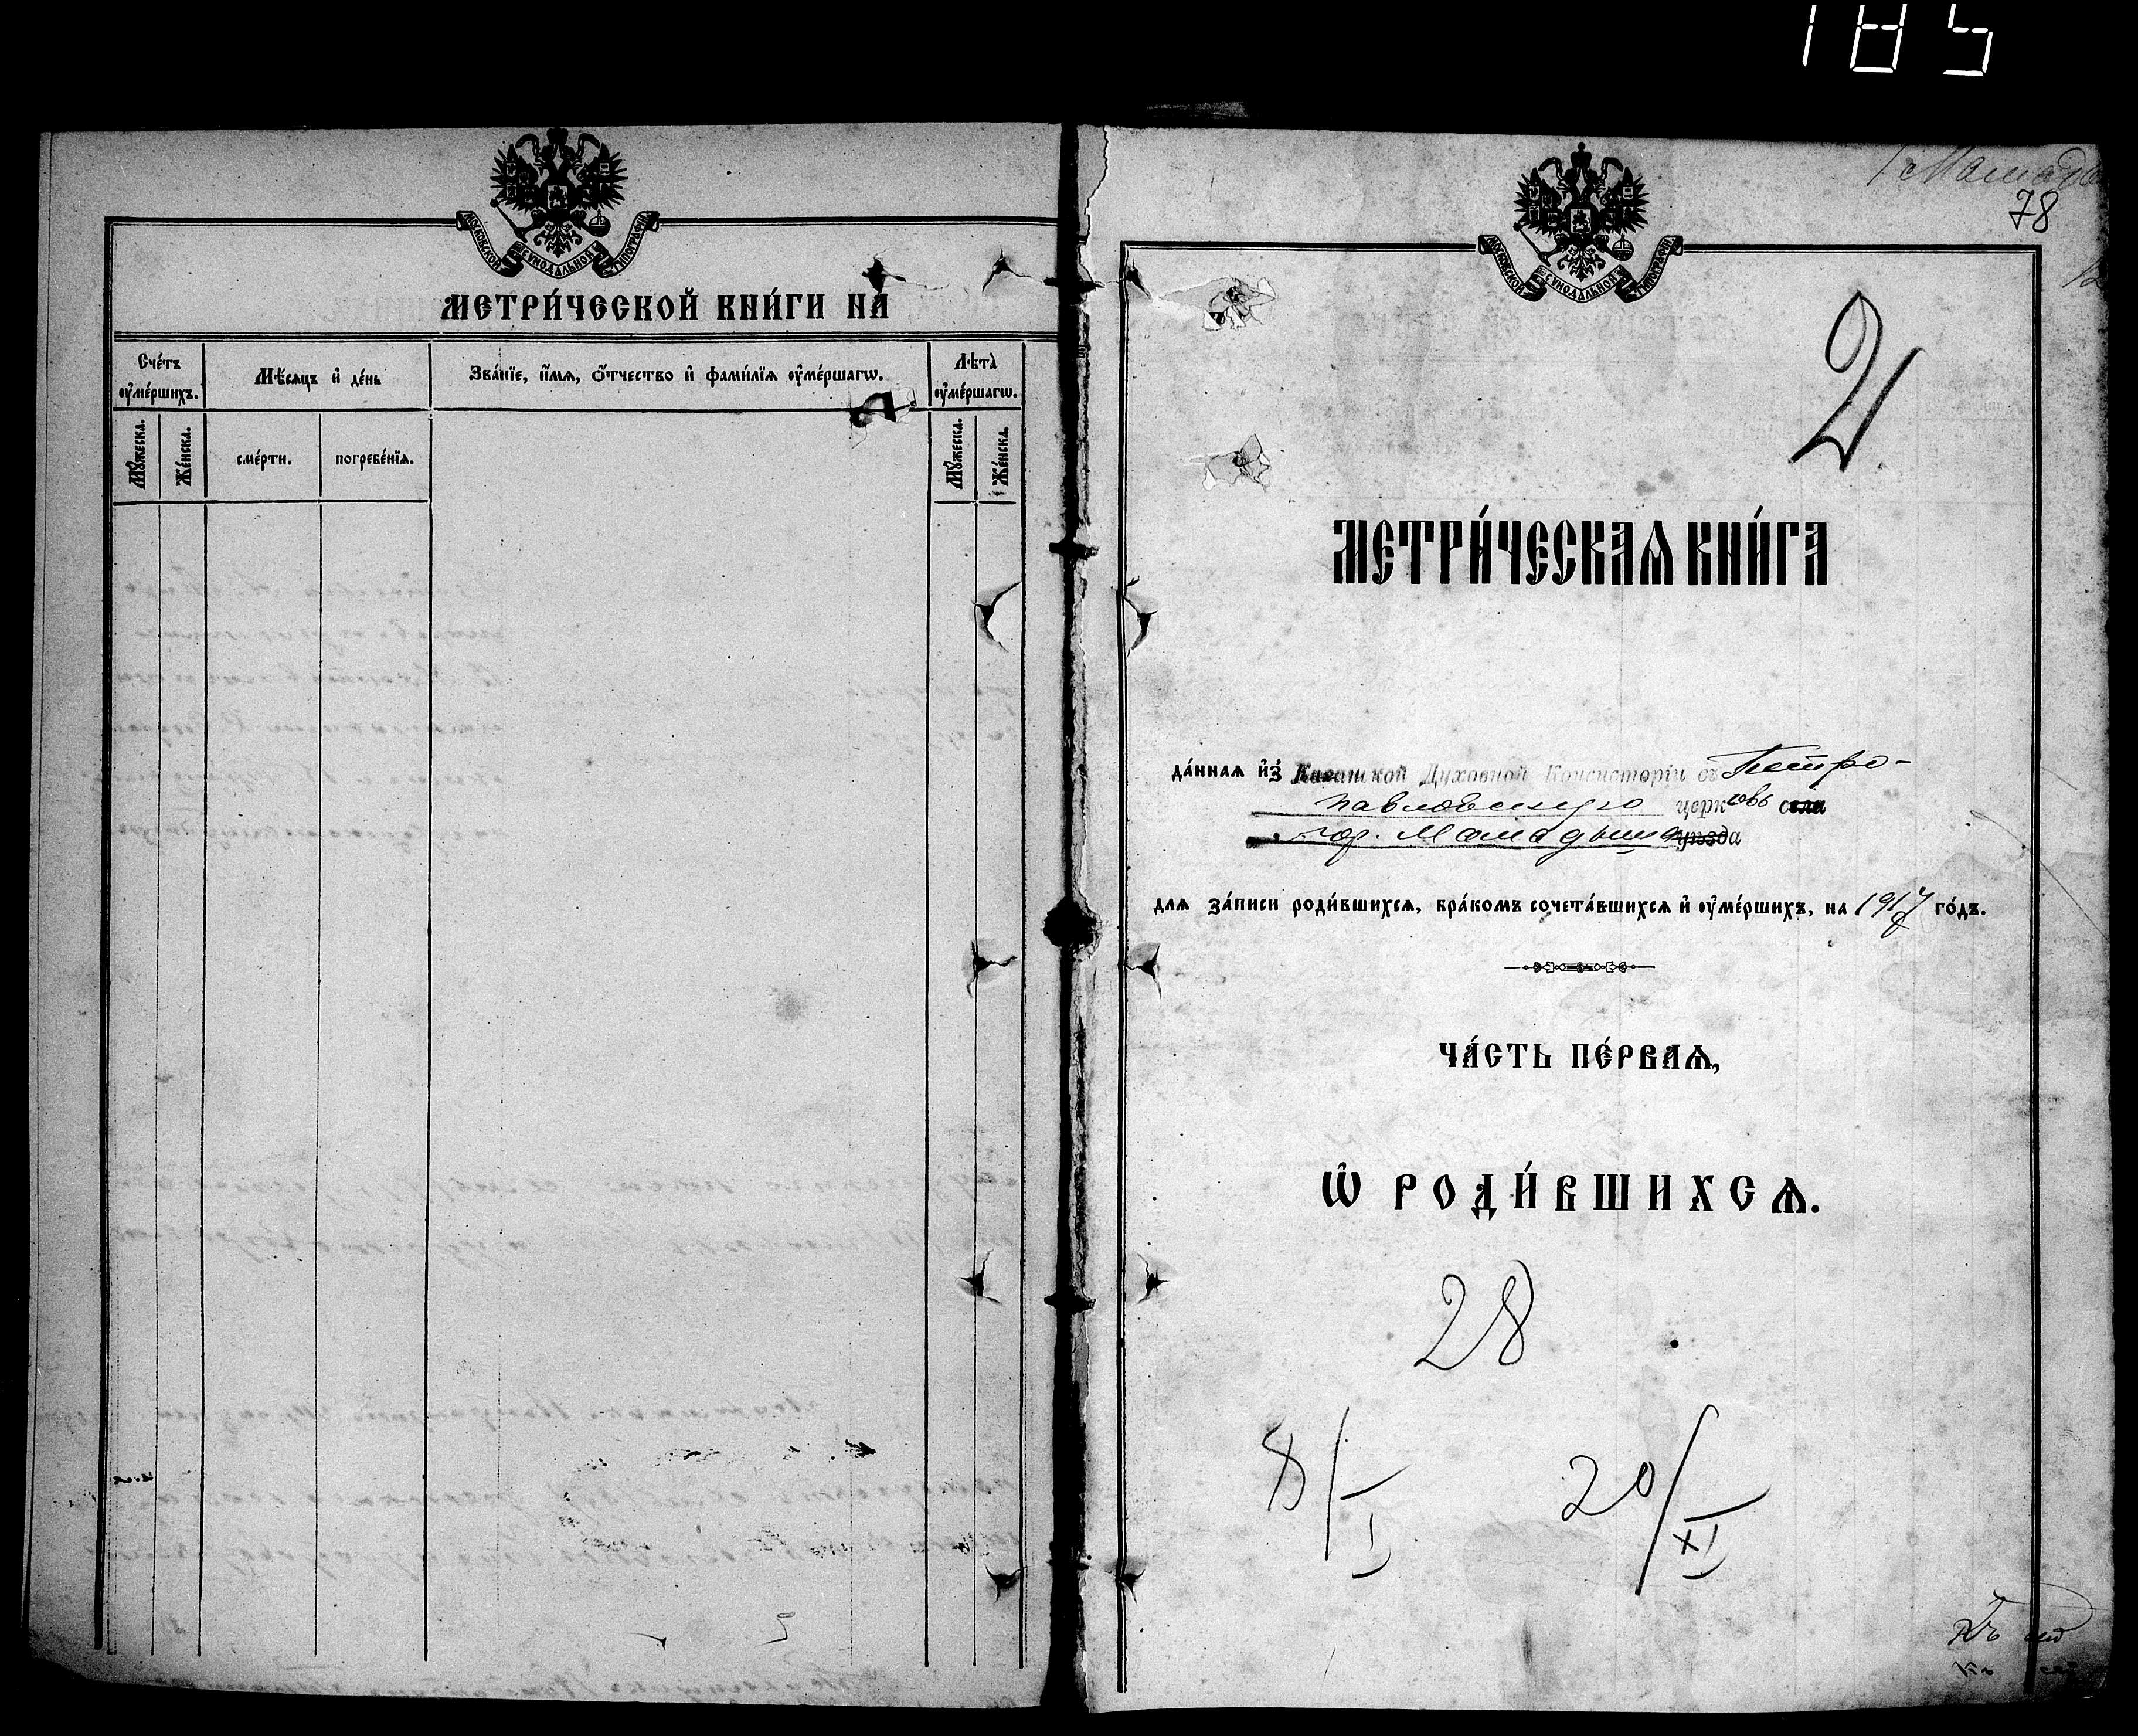 185
МОСКОВСКОЙ СѴНОДАЛЬНОЙ ТИПОГРАФІИ
МЕТРИ́ЧЕСКОЙ КНИ́ГИ НА
Сче́тъ ᲂу҆ме́ршихъ.
Мѣ́сяцъ и҆ де́нь
Зва́нїе, и҆́мя, ѻ҆́тчество и҆ фами́лїя ᲂу҆ме́ршагѡ.
Лѣта̀ ᲂу҆ме́ршагѡ.
Мꙋ́жеска.
Же́нска.
сме́рти.
погребе́нїя.
Мꙋ́жеска.
Же́нска.
78
МОСКОВСКОЙ СѴНОДАЛЬНОЙ ТИПОГРАФІИ
МЕТРИ́ЧЕСКАѦ КНИ́ГА
да́нная и҆з̾ Казанской Духовной Консисторіи въ Петро-
павловскую церковь села
гор. Мамадыша уѣзда
для за́писи роди́вшихся, бра́комъ сочета́вшихся и҆ ᲂу҆ме́ршихъ, на 1917 го́дъ.
ЧА́СТЬ ПЕ́РВАѦ,
Ѽ РОДИ́ВШИХСѦ.
28
8/I
20/XI